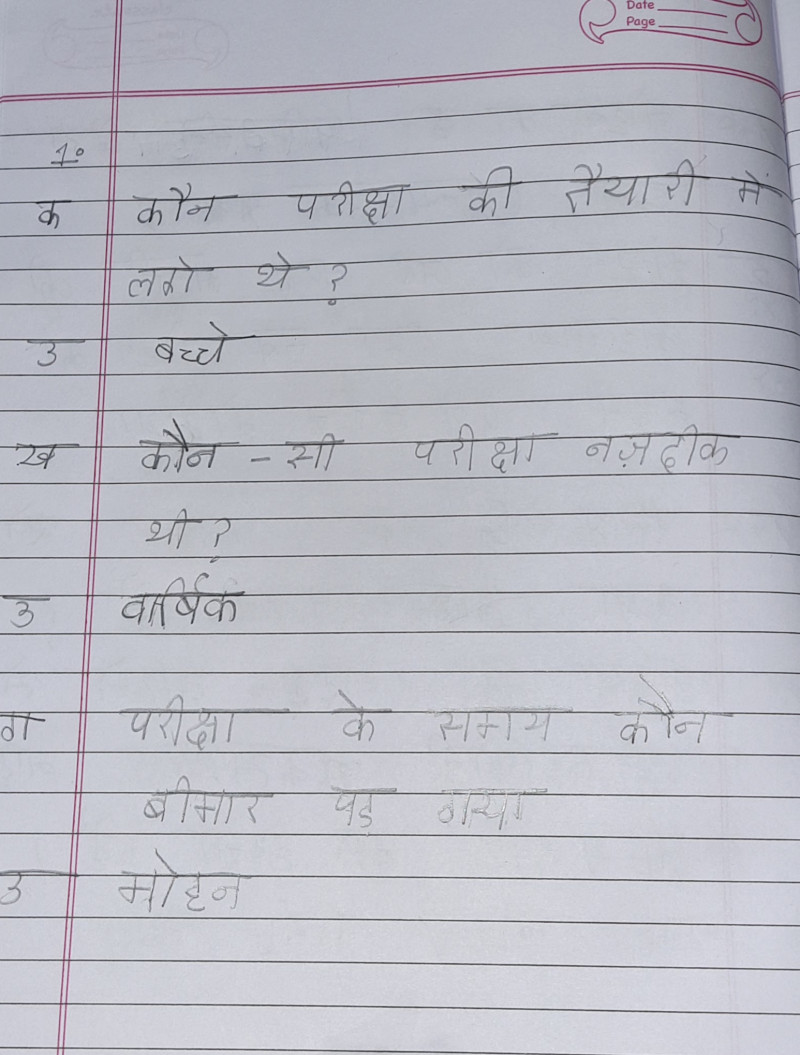 Date
Page
1०
क कौन परीक्षा की तैयारी में
लगे थे ?
उ बच्चे
ख कौन - सी परीक्षा नज़दीक
थी ?
उ वार्षिक
ग परीक्षा के समय कौन
बीमार पड़ गया
उ मोहन